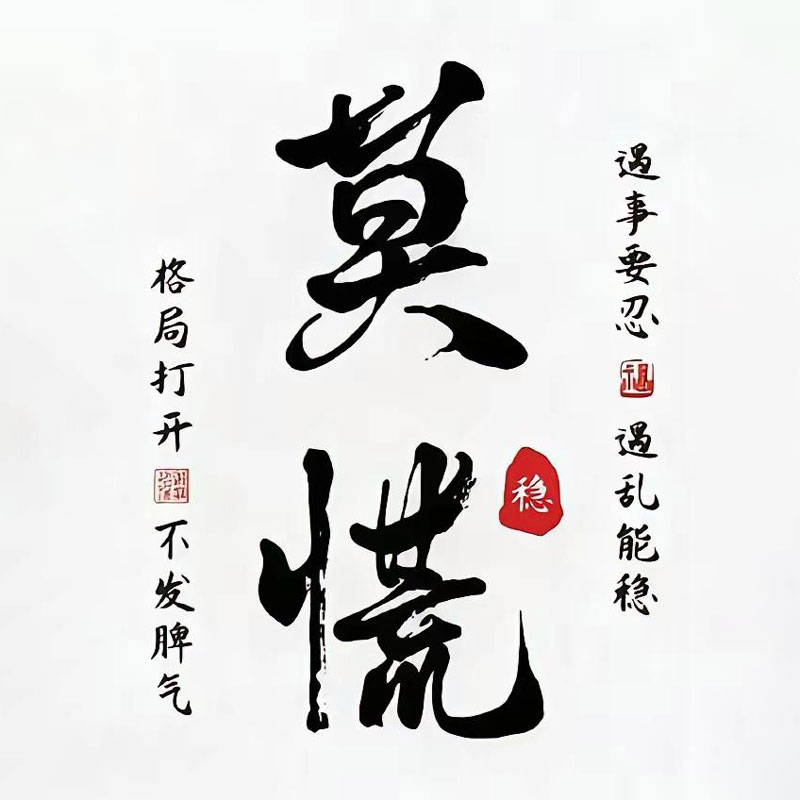 遇事要忍 遇乱能稳
莫慌
稳
格局打开 不发脾气